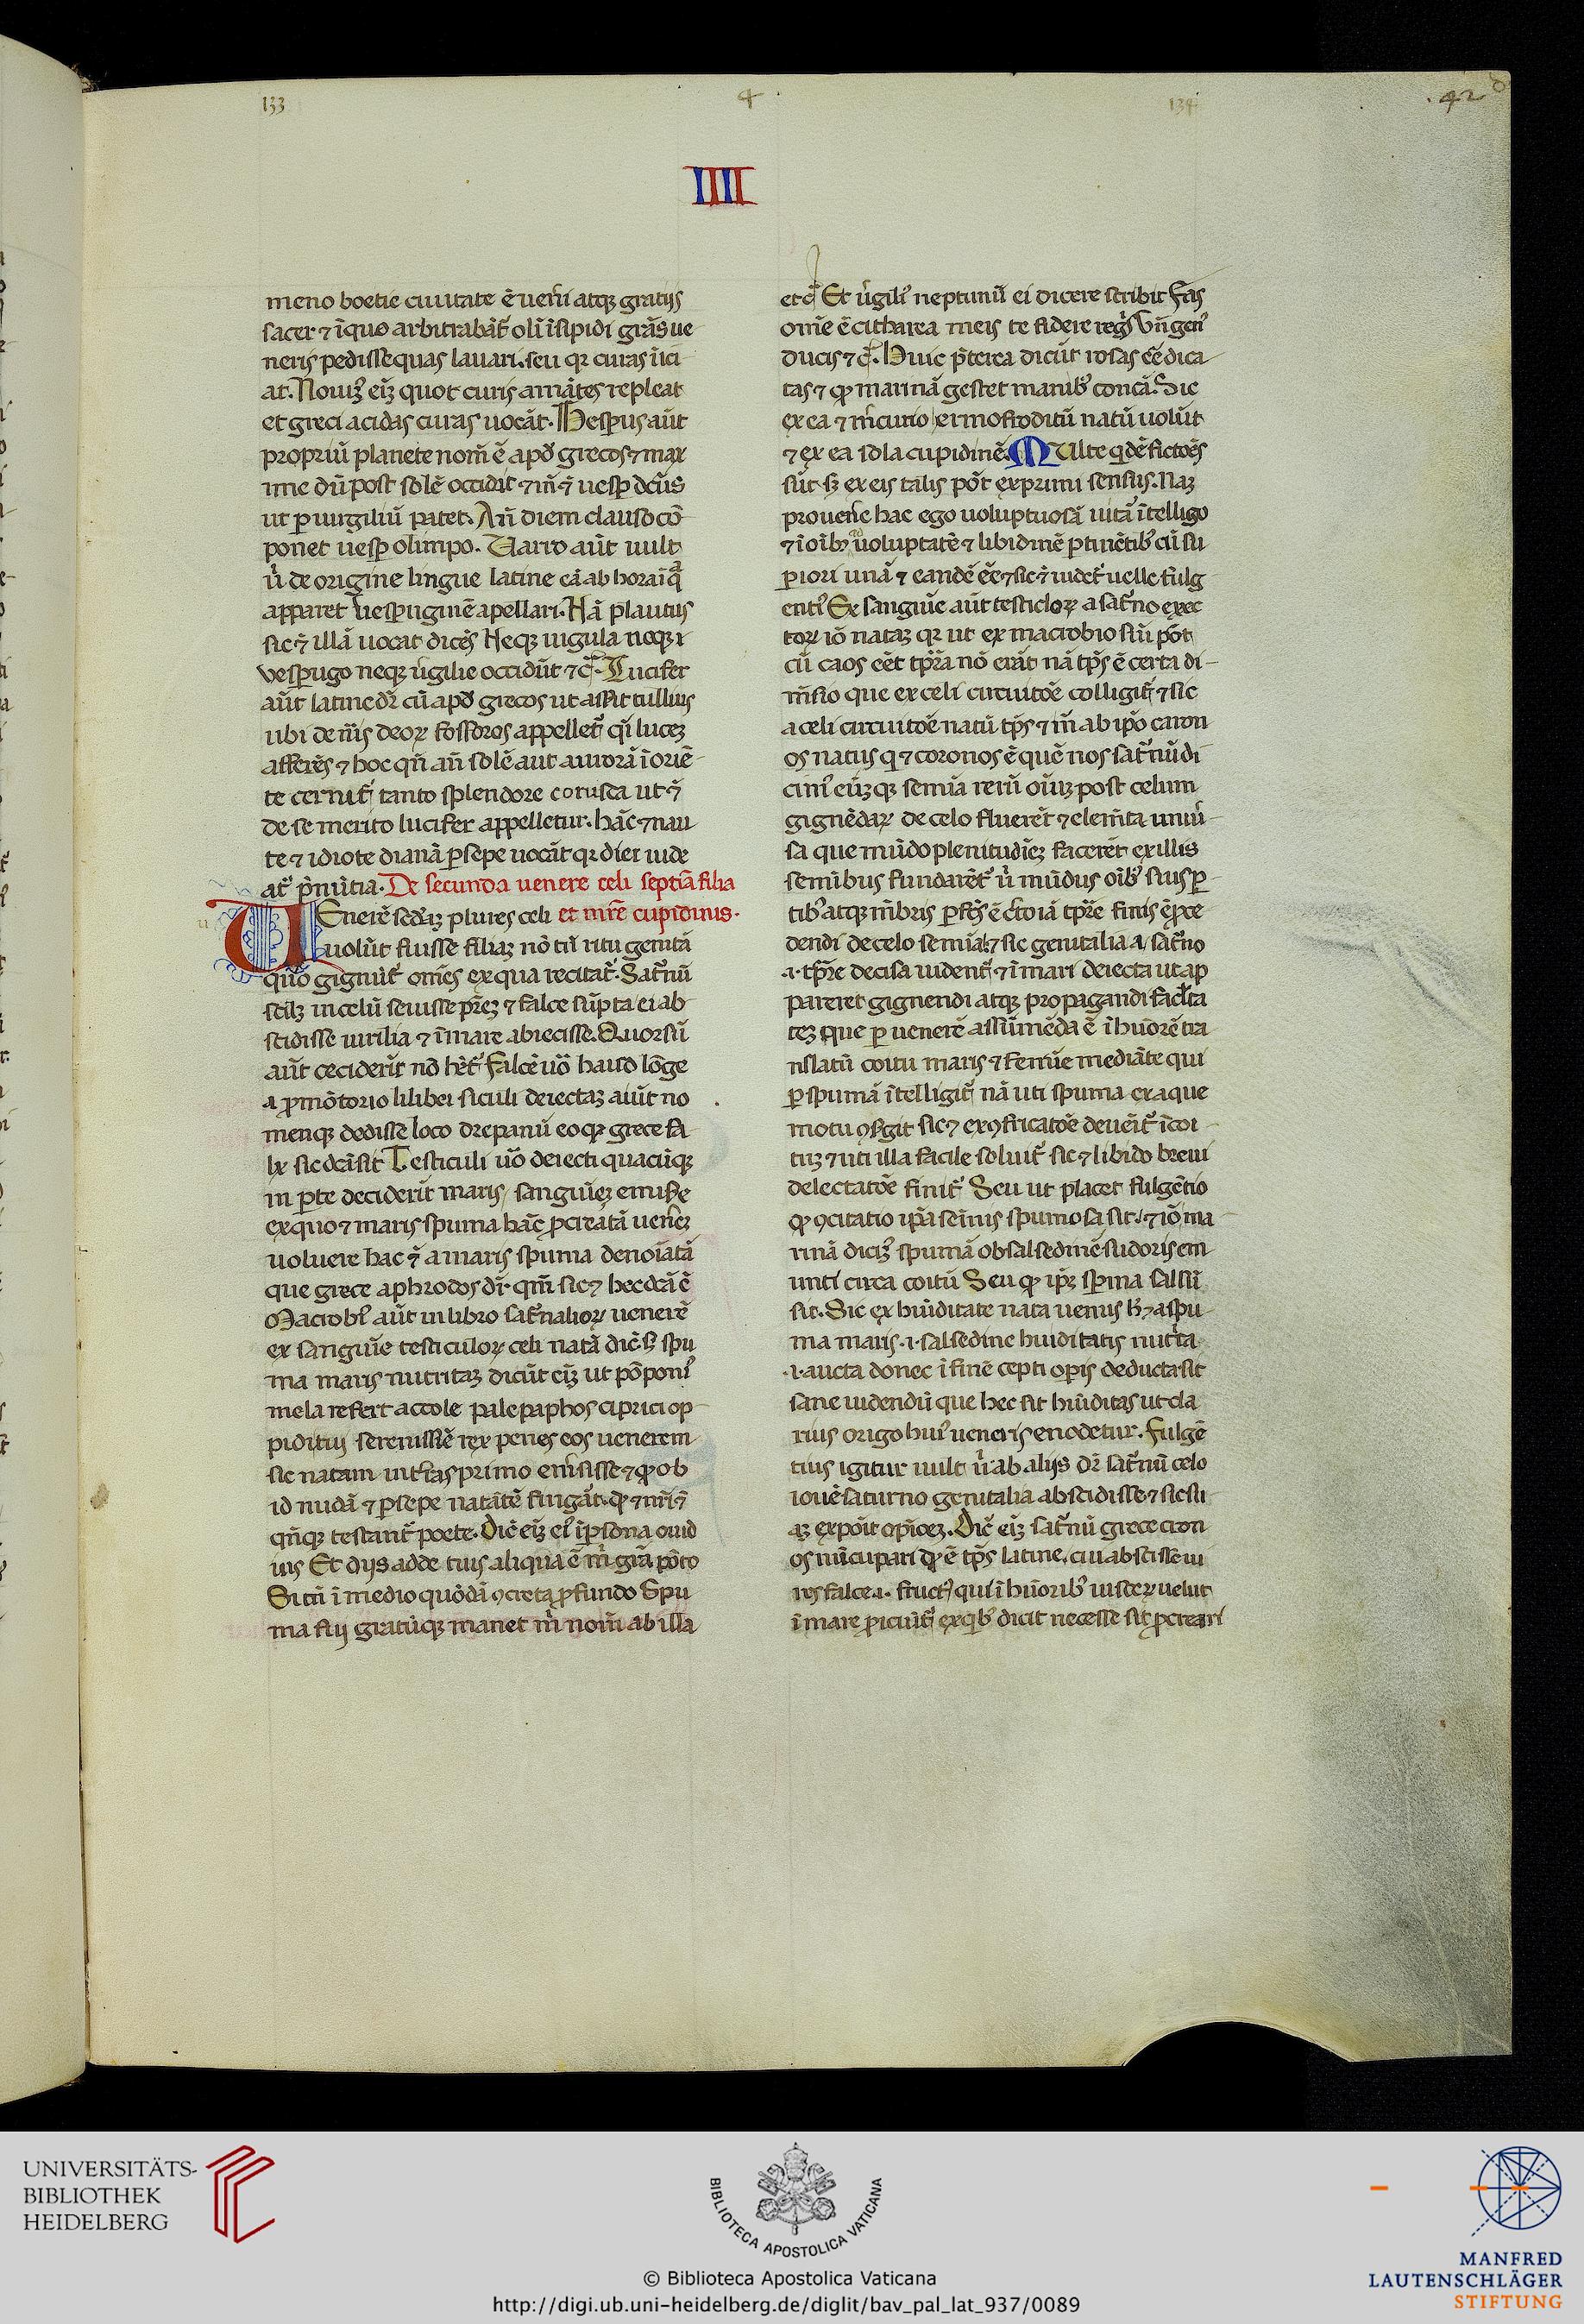 133
4
134
42
IIII
meno boetie ciuitate ē uen̄i atqꝫ gratijs
sacer ⁊ īquo arbitrabāt᷑ olī īsipidi grās ue
neris pedissequas lauari. seu qꝛ curas īici
at. Nouimꝰ eīꝫ quot curis amātes repleat
et greci acidas curas uocāt. Hesperus aūt
propriū planete nom̄ ē apđ grecos ⁊ max
ime dū post solē occidit ⁊ m̄ ⁊ uesꝑ dc̄us
ut ꝑ uirgiliū patet. An̄ diem clauso cō
ponet uesꝑ olimpo. Varro aūt uult
ubi de origine lingue latine eā ab hora īqua
apparet uesꝑuginē apellari. Nā plautus
sic ⁊ illā uocat dicēs Neqꝫ iugula neqꝫ
vesꝑugo neqꝫ uirgilie occidūt ⁊c̄. Lucifer
aūt latine dr̄ cū apđ grecos ut assit tullius
ubi de nāis deoꝝ fosforos appellet᷑ qͥ luceꝫ
afferēs ⁊ hoc qn̄ an̄ solē aut aurorā ī oriē
te cernit᷑ tanto splendore corusca ut ⁊
de se merito lucifer appelletur. hāc ⁊ nau
te ⁊ idiote dianā ꝑsepe uocāt qꝛ diei uide
at᷑ p̄nūtia. De secunda uenere celi septīa filia
et mr̄e cupidinis.
Venerē secūdaꝫ plures celi
uolūt fuisse filiaꝫ nō tn̄ ritu genitā
quo gignūt᷑ om̄es ex qua recitat᷑. Sat᷑nū
scilꝫ in celū seuisse pr̄eꝫ ⁊ falce sūpta ei ab
scidisse uirilia ⁊ ī mare abiecisse. Quorsū
aūt ceciderīt nō hēt᷑ falcē uō haud lōge
a ꝓmōtorio lilibei siculi deiectaꝫ aiūt no
menqꝫ dedisse loco drepanū eo qꝛ grece fa
lx sic dc̄a sit Testiculi uō deiecti quacūqꝫ
in ꝑte deciderīt maris, sanguīeꝫ emisse
ex quo ⁊ maris spuma hāc ꝓcreatā uen̄eꝫ
uoluere hāc ⁊ a maris spuma denoīatā
que grece aphrodos dr̄. qm̄ sic ⁊ hec dc̄ā ē
Macrobiꝰ aūt in libro sat᷑nalioꝝ uenerē
ex sanguīe testiculoꝝ celi natā dic̄. ꝫ spu
ma maris nutritaꝫ dicūt eīꝫ ut pōponiꝰ
mela refert accole palepaphos ciprici op
piditui serenissīe rex penes eos uenerem
sic natam in tr̄as primo emisisse ⁊ ꝙ ob
id nudā ⁊ ꝑsepe natātē fingāt. ꝙ ⁊ nr̄i ⁊
qn̄qꝫ testant᷑ poete. Dic̄ eīꝫ eiꝰ ī ꝑsona ouid
ius Et dijs adde tuis aliqua ē m̄ grā pōto
Si tn̄ ī medio quōdā ꝯcreta ꝓfundo Spu
ma fui gratūqꝫ manet m̄ nom̄ ab illa
etc̄. Et ūrgiliꝰ neptunū ei dicere scribit Fas
om̄e ē citharea meis te fidere regnis Vn̄ genꝰ
ducis ⁊c̄. Huic p̄terea dicūt rosas eē dica
tas ⁊ ꝙ marinā gestet manibꝰ concā. Sic
ex ea ⁊ m̄curio ermofroditū natū uolūt
⁊ ex ea sola cupidinē. MUlte qͥdē fictoēs
sūt sꝫ ex eis talis pōt exprimi sensus. Naꝫ
pro uen̄e hac ego uoluptuosā uitā ītelligo
⁊ ī oībꝰ ad uoluptatē ⁊ libidinē ꝑtinētibꝰ cū su
ꝑiori unā ⁊ eandē eē ⁊ sic ⁊ uidet᷑ uelle fulg
entiꝰ Ex sanguīe aūt testicloꝝ a sat᷑no exec
toꝝ iō nataꝫ qꝛ ut ex macrobio sūi pōt
cū caos eēt tp̄ra nō erāt nā tp̄s ē certa di
mēsio que ex celi circuitōe colligit᷑ ⁊ sic
a celi circuitōe natū tp̄s ⁊ īn ab ip̄o caron
os natus qͥ ⁊ coronos ē quē nos sat᷑nū di
cimꝰ cūqꝫ semīa rerū oīuꝫ post celum
gignēdaꝝ de celo fluerēt ⁊ elem̄ta uniu᷑
sa que mūdo plenitudīeꝫ facerēt ex illis
seminibus fundarēt᷑ ubi mūdus oībꝰ suis ꝑ
tibꝰ atqꝫ mēbris ꝑfc̄s ē certo iā tp̄re finis ē ꝓce
dendi de celo semīa ⁊ sic genitalia a sat᷑no
.i. tp̄re decisa uident᷑ ⁊ ī mari deiecta ut ap
pareret gignendi atqꝫ propagandi faculta
teꝫ que ꝑ uenerē assūmēda ē ī hūorē tra
nslatū coitu maris ⁊ femīe mediāte qui
ꝑ spumā ītelligit᷑ nā uti spuma ex aque
motu ꝯsurgit sic ⁊ ex ꝯfricatōe deuēit᷑ ī coi
tuꝫ ⁊ uti illa facile soluit᷑ sic ⁊ libido breui
delectatōe finit᷑ Seu ut placet fulgētio
ꝙ ꝯcitatio ip̄a semīis spumosa sit. ⁊ iō ma
rinā dicimꝰ spumā ob salsedinē sudoris em
unti circa coitū Seu ꝙ ip̄ꝫ sꝑma salsū
sit. Sic ex hūiditate nata uenus ꝫ a spu
ma maris .i. salsedine hūiditatis nutrita
.i. aucta donec ī finē cepti oꝑis deducta sit
sane uidendū que hec sit hūiditas ut cla
rius origo huiꝰ ueneris enodetur. Fulgē
tius igitur uult ubi ab alijs dr̄ sat᷑nū celo
iouē saturno genitalia abscidisse ⁊ sic su
aꝫ expōit opīoeꝫ. Dic̄ eīꝫ sat᷑nū grece cron
os nūcupari ꝙ ē tp̄s latine, cui abscisse ui
res falce .i. fructꝰ qui ī hūoribꝰ uisceꝝ uelut
ī mare ꝓiciūt᷑ ex qͥbꝰ dicit necesse sit ꝓcreari
UNIVERSITÄTS-
BIBLIOTHEK
HEIDELBERG
BIBLIOTECA APOSTOLICA VATICANA
© Biblioteca Apostolica Vaticana
http://digi.ub.uni-heidelberg.de/diglit/bav_pal_lat_937/0089
MANFRED
LAUTENSCHLÄGER
STIFTUNG